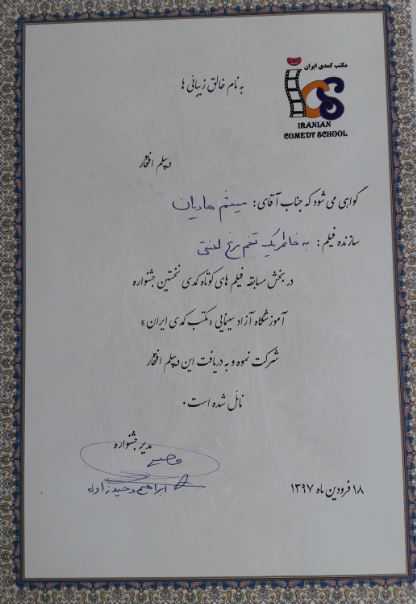 مکتب کمدی ایران
ICS
IRANIAN
COMEDY SCHOOL
به نام خالق زیبائی ها
دیپلم افتخار
گواهی می شود که جناب آقای: میثم هادیان
سازنده فیلم: به خاطر یک تخم مرغ لعنتی
در بخش مسابقه فیلم های کوتاه کمدی نخستین جشنواره
آموزشگاه آزاد سینمایی «مکتب کمدی ایران»
شرکت نموده و به دریافت این دیپلم افتخار
نائل شده است.
مدیر جشنواره
ابراهیم وحیدزاده
۱۸ فرودین ماه ۱۳۹۷